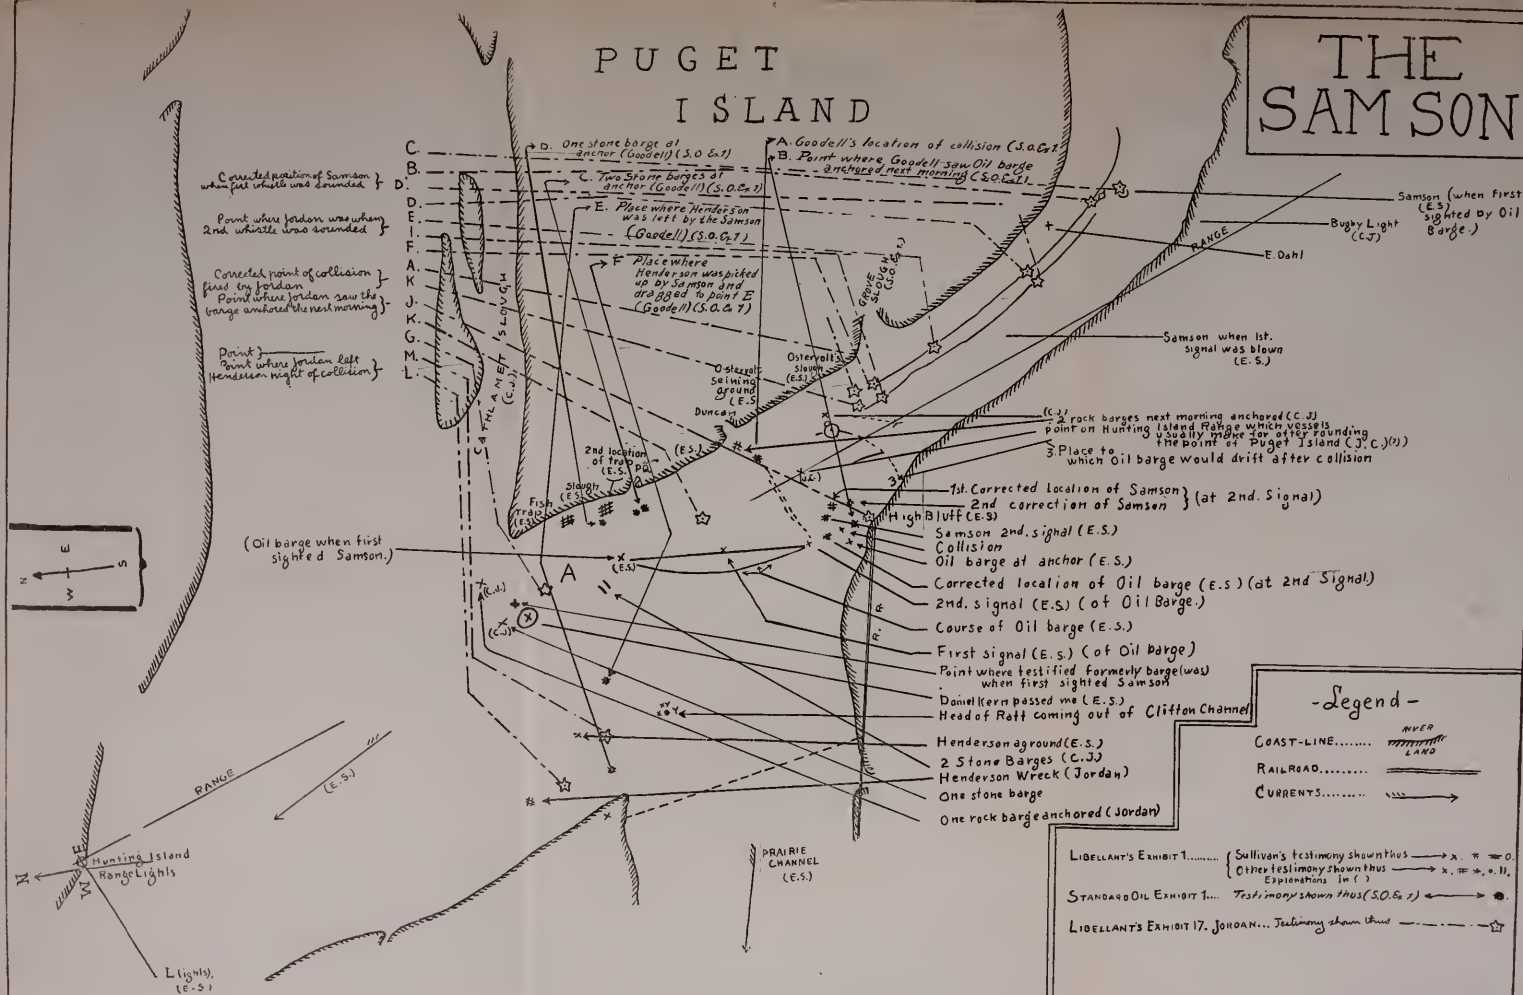 PUGET
ISLAND
THE
SAMSON
C.
B.
D'.
D.
E.
I.
F.
A.
K
J.
K.
G.
M.
L.
Corrected position of Samson
when first whistle was sounded
Point where Jordan was when
2nd whistle was sounded
Corrected point of collision
fixed by Jordan
Point where Jordan saw the
barge anchored the next morning
Point
Point where Jordan left
Henderson night of collision
D. One stone barge at
anchor (Goodell) (S.O Ex 1)
C. Two Stone barges at
anchor (Goodell) (S.O.Ex 1)
E. Place where Henderson
was left by the Samson
(Goodell) (S.O.Ex 1)
F Place where
Henderson was picked
up by Samson and
dragged to point E
(Goodell) (S.O.Ex 1)
A. Goodell's location of collision (S.O.Ex 1.
B. Point where Goodell saw Oil barge
anchored next morning (S.O.Ex 1)
CATHLAMET ISLOUGH
(C.J.)
GROVE
SLOUGH
(S.O.Ex 1.)
RANGE
Samson (when first
(E.S)
sighted by Oil
Barge.)
Bugby Light
(C.J)
E. Dahl
Samson when 1st.
signal was blown
(E.S.)
Ostervolt's
slough
(E.S.)
Ostervolt
seining
ground
(E.S
Duncan
(E.S.)
2nd location
of trap
(E.S.)
PQ
Slough
(E.S.
Fish
Trap
(E.S.)
(C.J.)
2 rock barges next morning anchored (C.J)
point on Hunting Island Range which vessels
usually make for after rounding
the point of Puget Island (J.C.)(?)
3. Place to
which Oil barge would drift after collision
(J.C.)
3
1st. Corrected location of Samson
2nd correction of Samson
(at 2nd. Signal)
High Bluff (E.S)
Samson 2nd. signal (E.S.)
Collision
Oil barge at anchor (E.S.)
Corrected location of Oil barge (E.S) (at 2nd Signal.)
2nd. signal (E.S) (of Oil Barge.)
Course of Oil barge (E.S.)
First signal (E.S.) (of Oil barge)
Point where testified formerly barge (was)
when first sighted Samson
Daniel Kern passed me (E.S.)
Head of Raft coming out of Clifton Channel
Henderson aground (E.S.)
2 Stone Barges (C.J.)
Henderson Wreck (Jordan)
One stone barge
One rock barge anchored (Jordan)
(Oil barge when first
sighted Samson.)
(E.S)
A
(C.J.)
(C.J)
R. R
N
E
S
W
RANGE
(E.S.)
N
E
W
Hunting Island
Range Lights
L(ights),
(E.S)
PRAIRIE
CHANNEL
(E.S.)
-Legend-
COAST-LINE........
RIVER
LAND
RAILROAD.........
CURRENTS.........
LIBELLANT'S EXHIBIT 1........ Sullivan's testimony shown thus x. * = o.
Other testimony shown thus x. # *, o. 11.
Explanations in ( )
STANDARD OIL EXHIBIT 1.... Testimony shown thus (S.O.Ex 1)
LIBELLANT'S EXHIBIT 17. JORDAN... Testimony shown thus